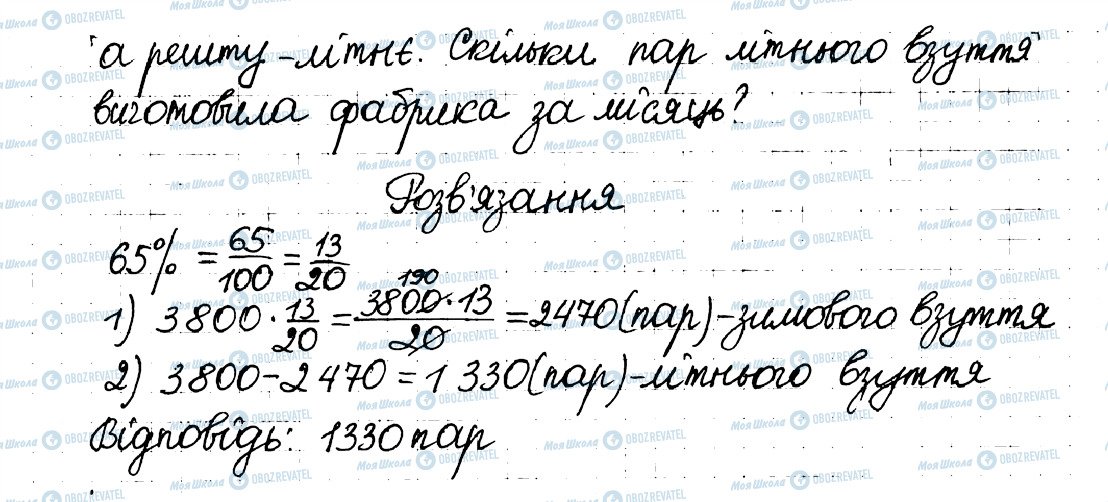 а решту - літнє. Скільки пар літнього взуття
виготовила фабрика за місяць?
Розв'язання
65% = 65/100 = 13/20
1) 3800 · 13/20 = 3800 · 13/20 = 2470 (пар) - зимового взуття
190
2) 3800 - 2470 = 1 330 (пар) - літнього взуття
Відповідь: 1330 пар